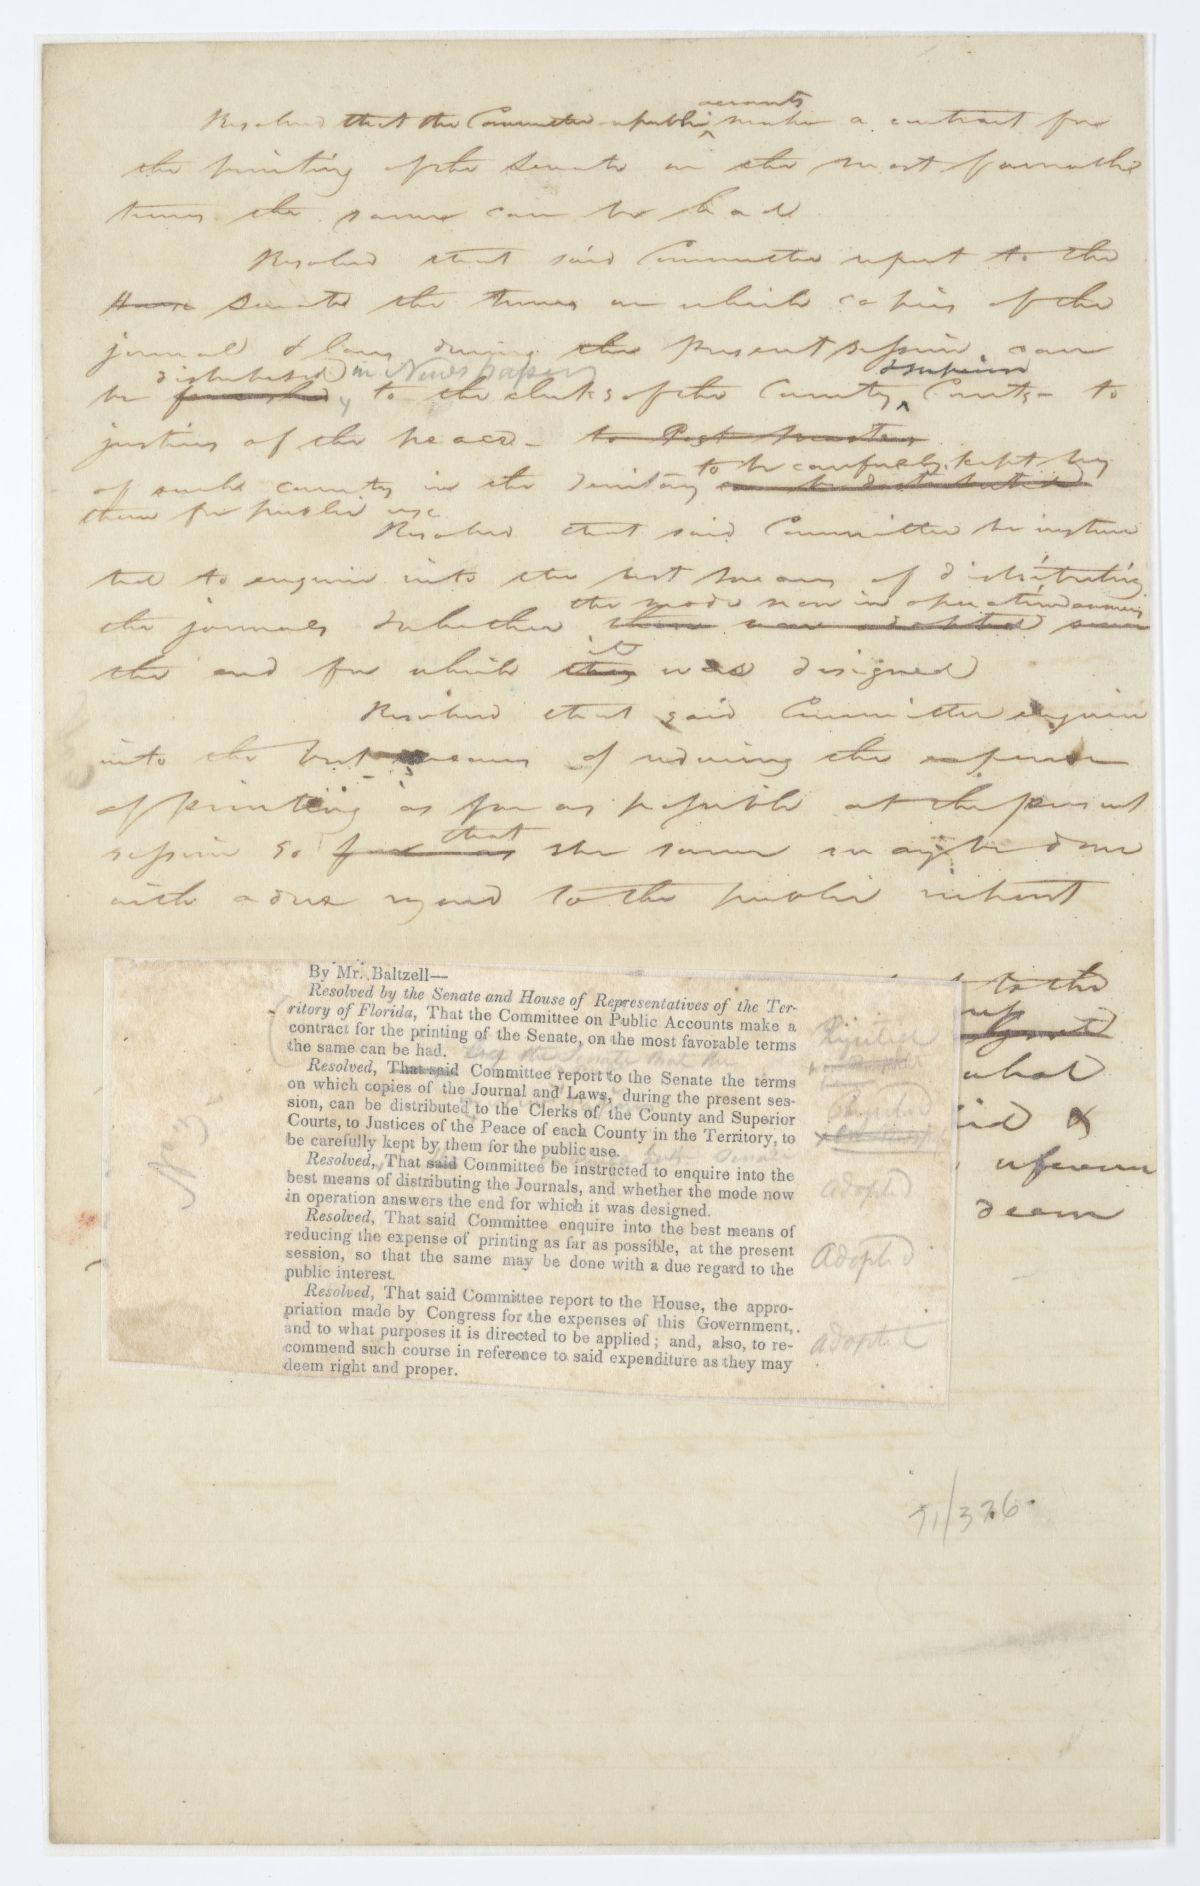 Resolved that the Committee on public accounts make a contract for
the printing of the Senate on the most favorable
terms the same can be had
Resolved that said Committee report to the
House Senate the terms on which copies of the
journal & laws during the present session can
distributed in Newspapers superior
be furnished to the clerks of the County Courts - to
justices of the peace - to Post Masters
to be carefully kept by
of each county in the Territory
them for public use
Resolved that said Committee be instruc
ted to enquire into the best means of distributing
the mode now in operation answers
the journals & whether
it
the end for which they was designed
Resolved that said Committee enquire
into the best means of reducing the expense
of printing as far as possible at the present
that
session so far as the same may be done
with a due regard to the public interest
to the
what
& 
reference
deem
By Mr. Baltzell—
Resolved by the Senate and House of Representatives of the Ter-
ritory of Florida, That the Committee on Public Accounts make a
contract for the printing of the Senate, on the most favorable terms
the same can be had. by the Senate that the
Resolved, That said Committee report to the Senate the terms
on which copies of the Journal and Laws, during the present ses-
sion, can be distributed to the Clerks of the County and Superior
Courts, to Justices of the Peace of each County in the Territory, to
be carefully kept by them for the public use.
Resolved, That said Committee be instructed to enquire into the
best means of distributing the Journals, and whether the mode now
in operation answers the end for which it was designed.
Resolved, That said Committee enquire into the best means of
reducing the expense of printing as far as possible, at the present
session, so that the same may be done with a due regard to the
public interest.
Resolved, That said Committee report to the House, the appro-
priation made by Congress for the expenses of this Government,
and to what purposes it is directed to be applied; and, also, to re-
commend such course in reference to said expenditure as they may
deem right and proper.
Rejected
adopted
Adopted
adopted
No 3
71/326